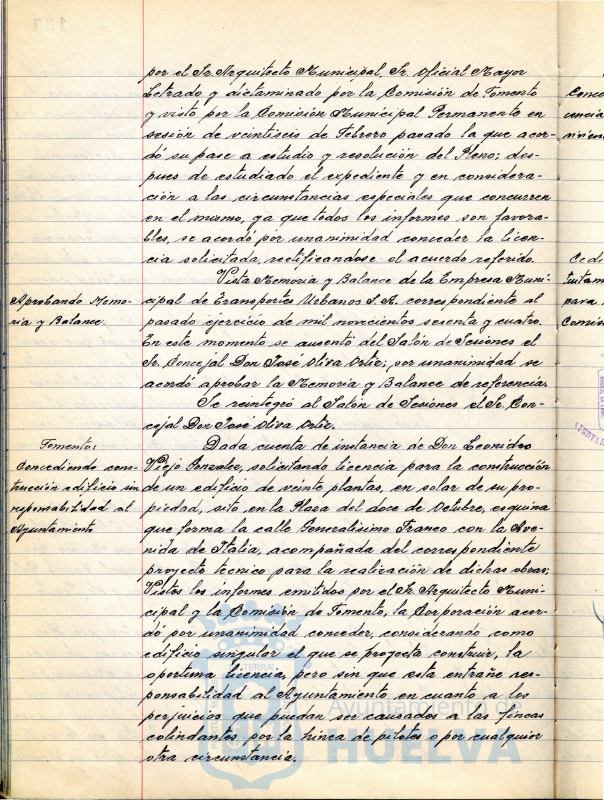 por el Sr. Arquitecto Municipal, Sr. Oficial Mayor
Letrado y dictaminado por la Comisión de Fomento
y visto por la Comisión Municipal Permanente en
sesión de veintiseis de Febrero pasado la que acor-
dó su pase a estudio y resolución del Pleno; des-
pues de estudiado el expediente y en considera-
ción a las circunstancias especiales que concurren
en el mismo, ya que todos los informes son favora-
bles, se acordó por unanimidad conceder la licen-
cia solicitada, rectificandose el acuerdo referido.
Aprobando Memo-
ria y Balance.
Vista Memoria y Balance de la Empresa Muni-
cipal de Transportes Urbanos S.A. correspondiente al
pasado ejercicio de mil novecientos sesenta y cuatro.
En este momento se ausentó del Salón de Sesiones el
Sr. Concejal Don José Oliva Ortiz; por unanimidad se
acordó aprobar la Memoria y Balance de referencia.
Se reintegró al Salón de Sesiones el Sr. Con-
cejal Don José Oliva Ortiz.
Fomento,
Concediendo cons-
trucción edificio sin
responsabilidad al
Ayuntamiento
Dada cuenta de instancia de Don Leonidro
Viejo Gonzalez, solicitando licencia para la construcción
de un edificio de veinte plantas, en solar de su pro-
piedad, sito en la Plaza del doce de Octubre, esquina
que forma la calle Generalísimo Franco con la Ave-
nida de Italia, acompañada del correspondiente
proyecto técnico para la realización de dichas obras;
Vistos los informes emitidos por el Sr. Arquitecto Muni-
cipal y la Comisión de Fomento, la Corporación acor-
dó por unanimidad conceder, considerando como
edificio singular el que se proyecta construir, la
oportuna licencia, pero sin que esta entrañe res-
ponsabilidad al Ayuntamiento en cuanto a los
perjuicios que puedan ser causados a las fincas
colindantes por la hinca de pilotes o por cualquier
otra circunstancia.
Ayuntamiento de
HUELVA